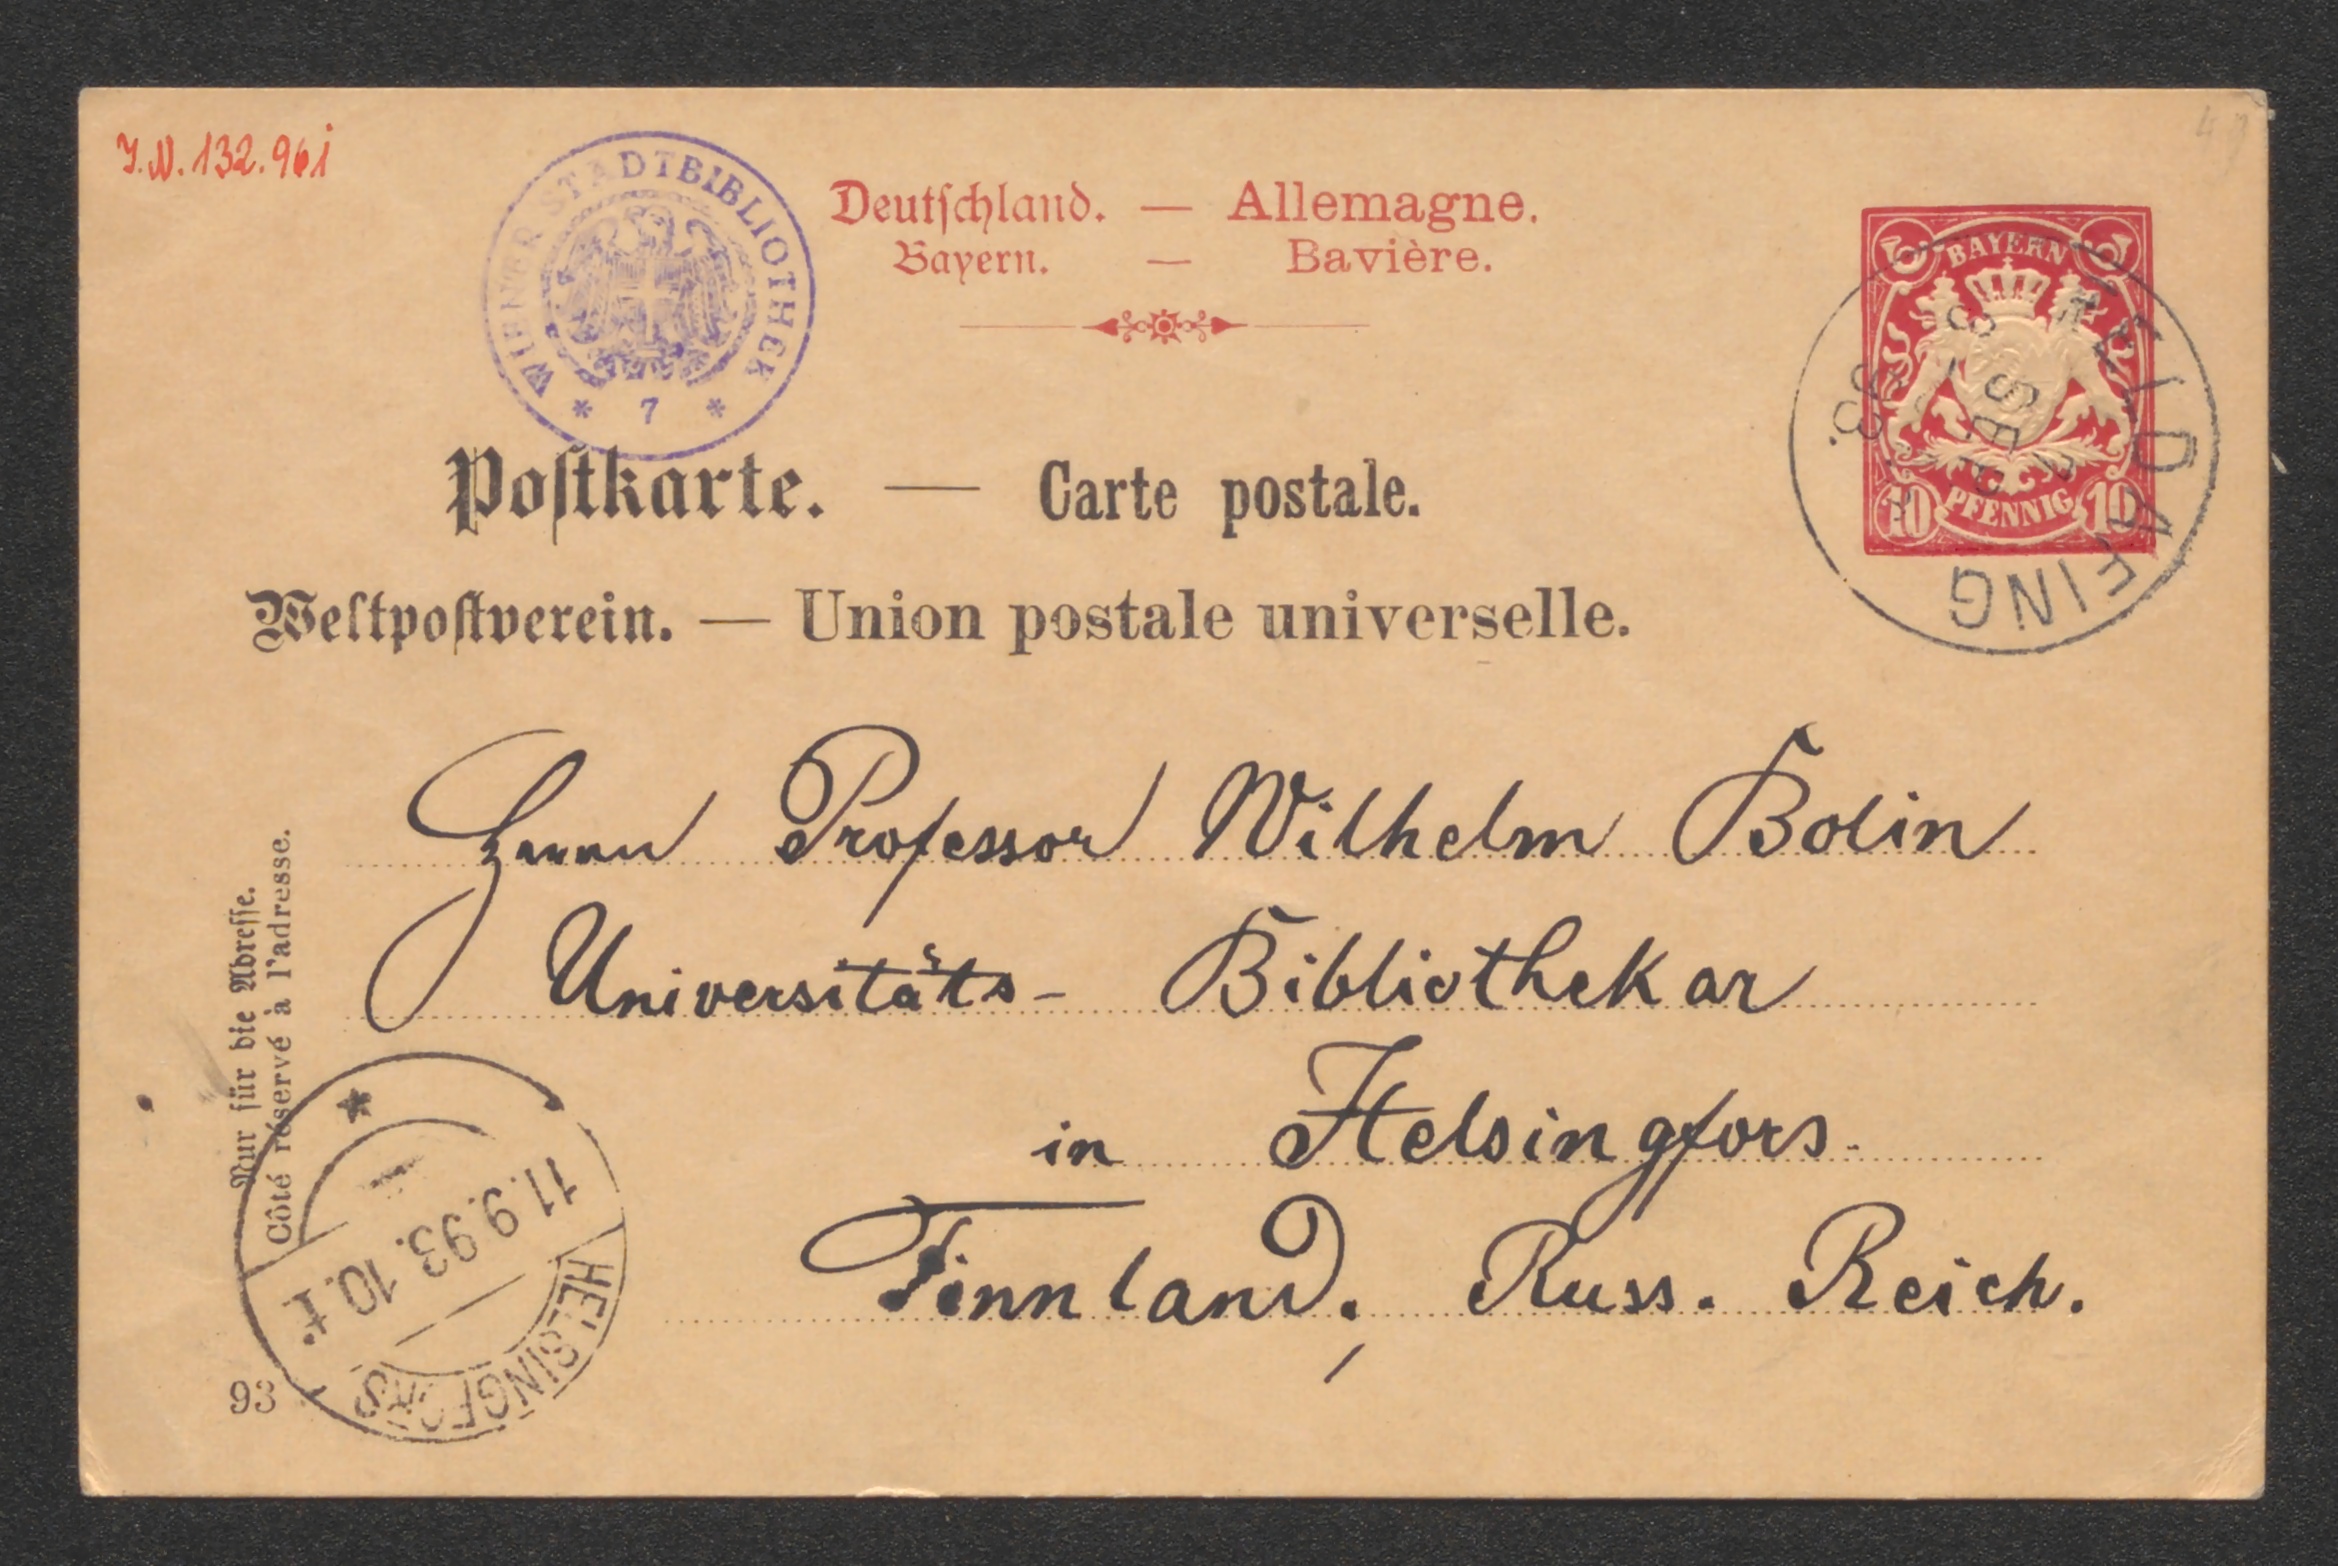 J.N. 132.961
49
WIENER STADTBIBLIOTHEK
* 7 *
Deutschland. — Allemagne.
Bayern. — Bavière.
BAYERN
10 PFENNIG 10
FEILDAFING
8 SEP
93.
Postkarte. — Carte postale.
Weltpostverein. — Union postale universelle.
Herrn Professor Wilhelm Bolin
Universitäts- Bibliothekar
in Helsingfors.
Finnland, Russ. Reich.
Nur für die Adresse.
Côté réservé à l'adresse.
HELSINGFORS
11.9.93. 10.f.
93